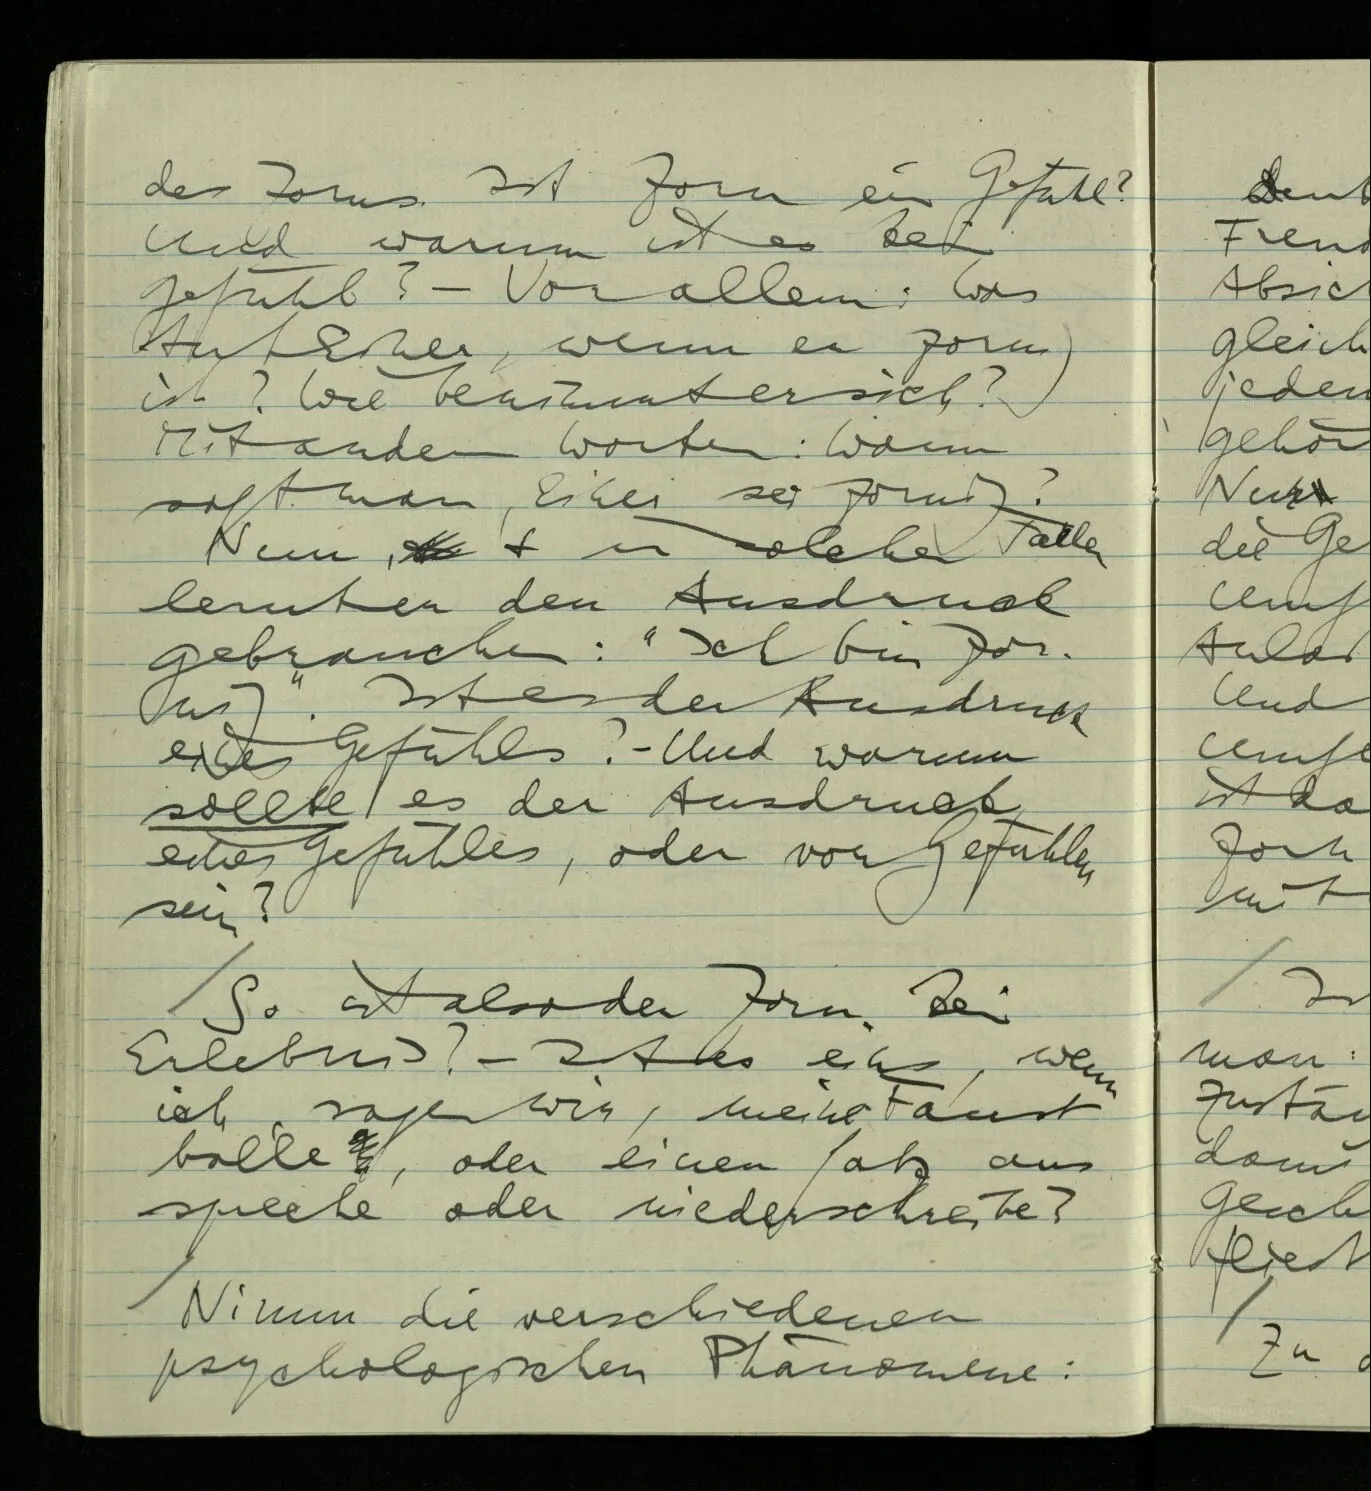 des Zorns. Ist Zorn ein Gefühl?
Und warum ist es kein
Gefühl? – Vor allem: Was
tut Einer, wenn er zornig
ist? Wie benimmt er sich?
Mit andern Worten: Wann
sagt man, Einer sei zornig?
Nun, & in solchen Fällen
lernt er den Ausdruck
gebrauchen: "Ich bin zor-
nig". Ist es der Ausdruck
eines Gefühls? – Und warum
sollte es der Ausdruck
eines Gefühles, oder von Gefühlen
sein?
/ So ist also der Zorn kein
Erlebnis? – Ist es eins, wenn
ich, sagen wir, meine Faust
balle, oder einen Satz aus
spreche oder niederschreibe?
/ Nimm die verschiedenen
psychologischen Phänomene:
Absich
gleich
jeden
gehör
Nun
die Ge
Und
ist da
Zorn
mit
/
man:
Zustän
fließt
/
Zu